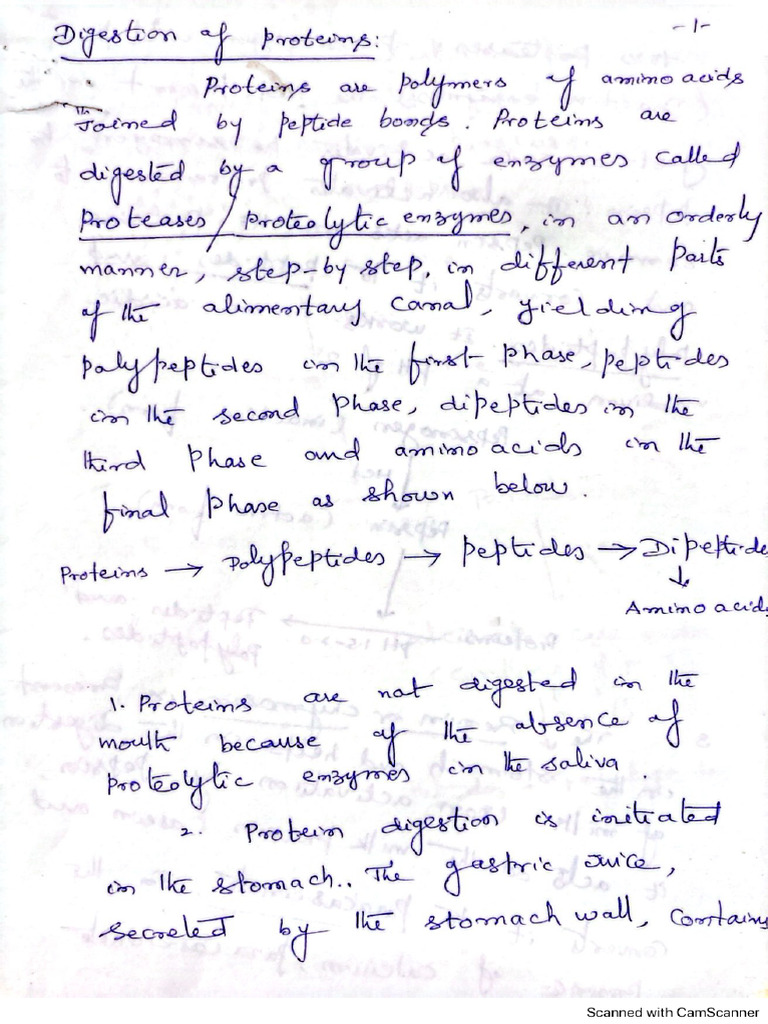 Digestion of Proteins:
-1-
Proteins are polymers of amino acids
Joined by peptide bonds. Proteins are
digested by a group of enzymes called
Proteases / Proteolytic enzymes, in an orderly
manner, step-by step, in different parts
of the alimentary canal, yielding
polypeptides in the first phase, peptides
in the second phase, dipeptides in the
third phase and amino acids in the
final phase as shown below.
Proteins → Polypeptides → peptides → Dipeptide
↓
Amino acids
1. Proteins are not digested in the
mouth because of the absence of
proteolytic enzymes in the saliva.
2. Protein digestion is initiated
in the stomach.. The gastric Juice,
secreted by the stomach wall, contains
Scanned with CamScanner